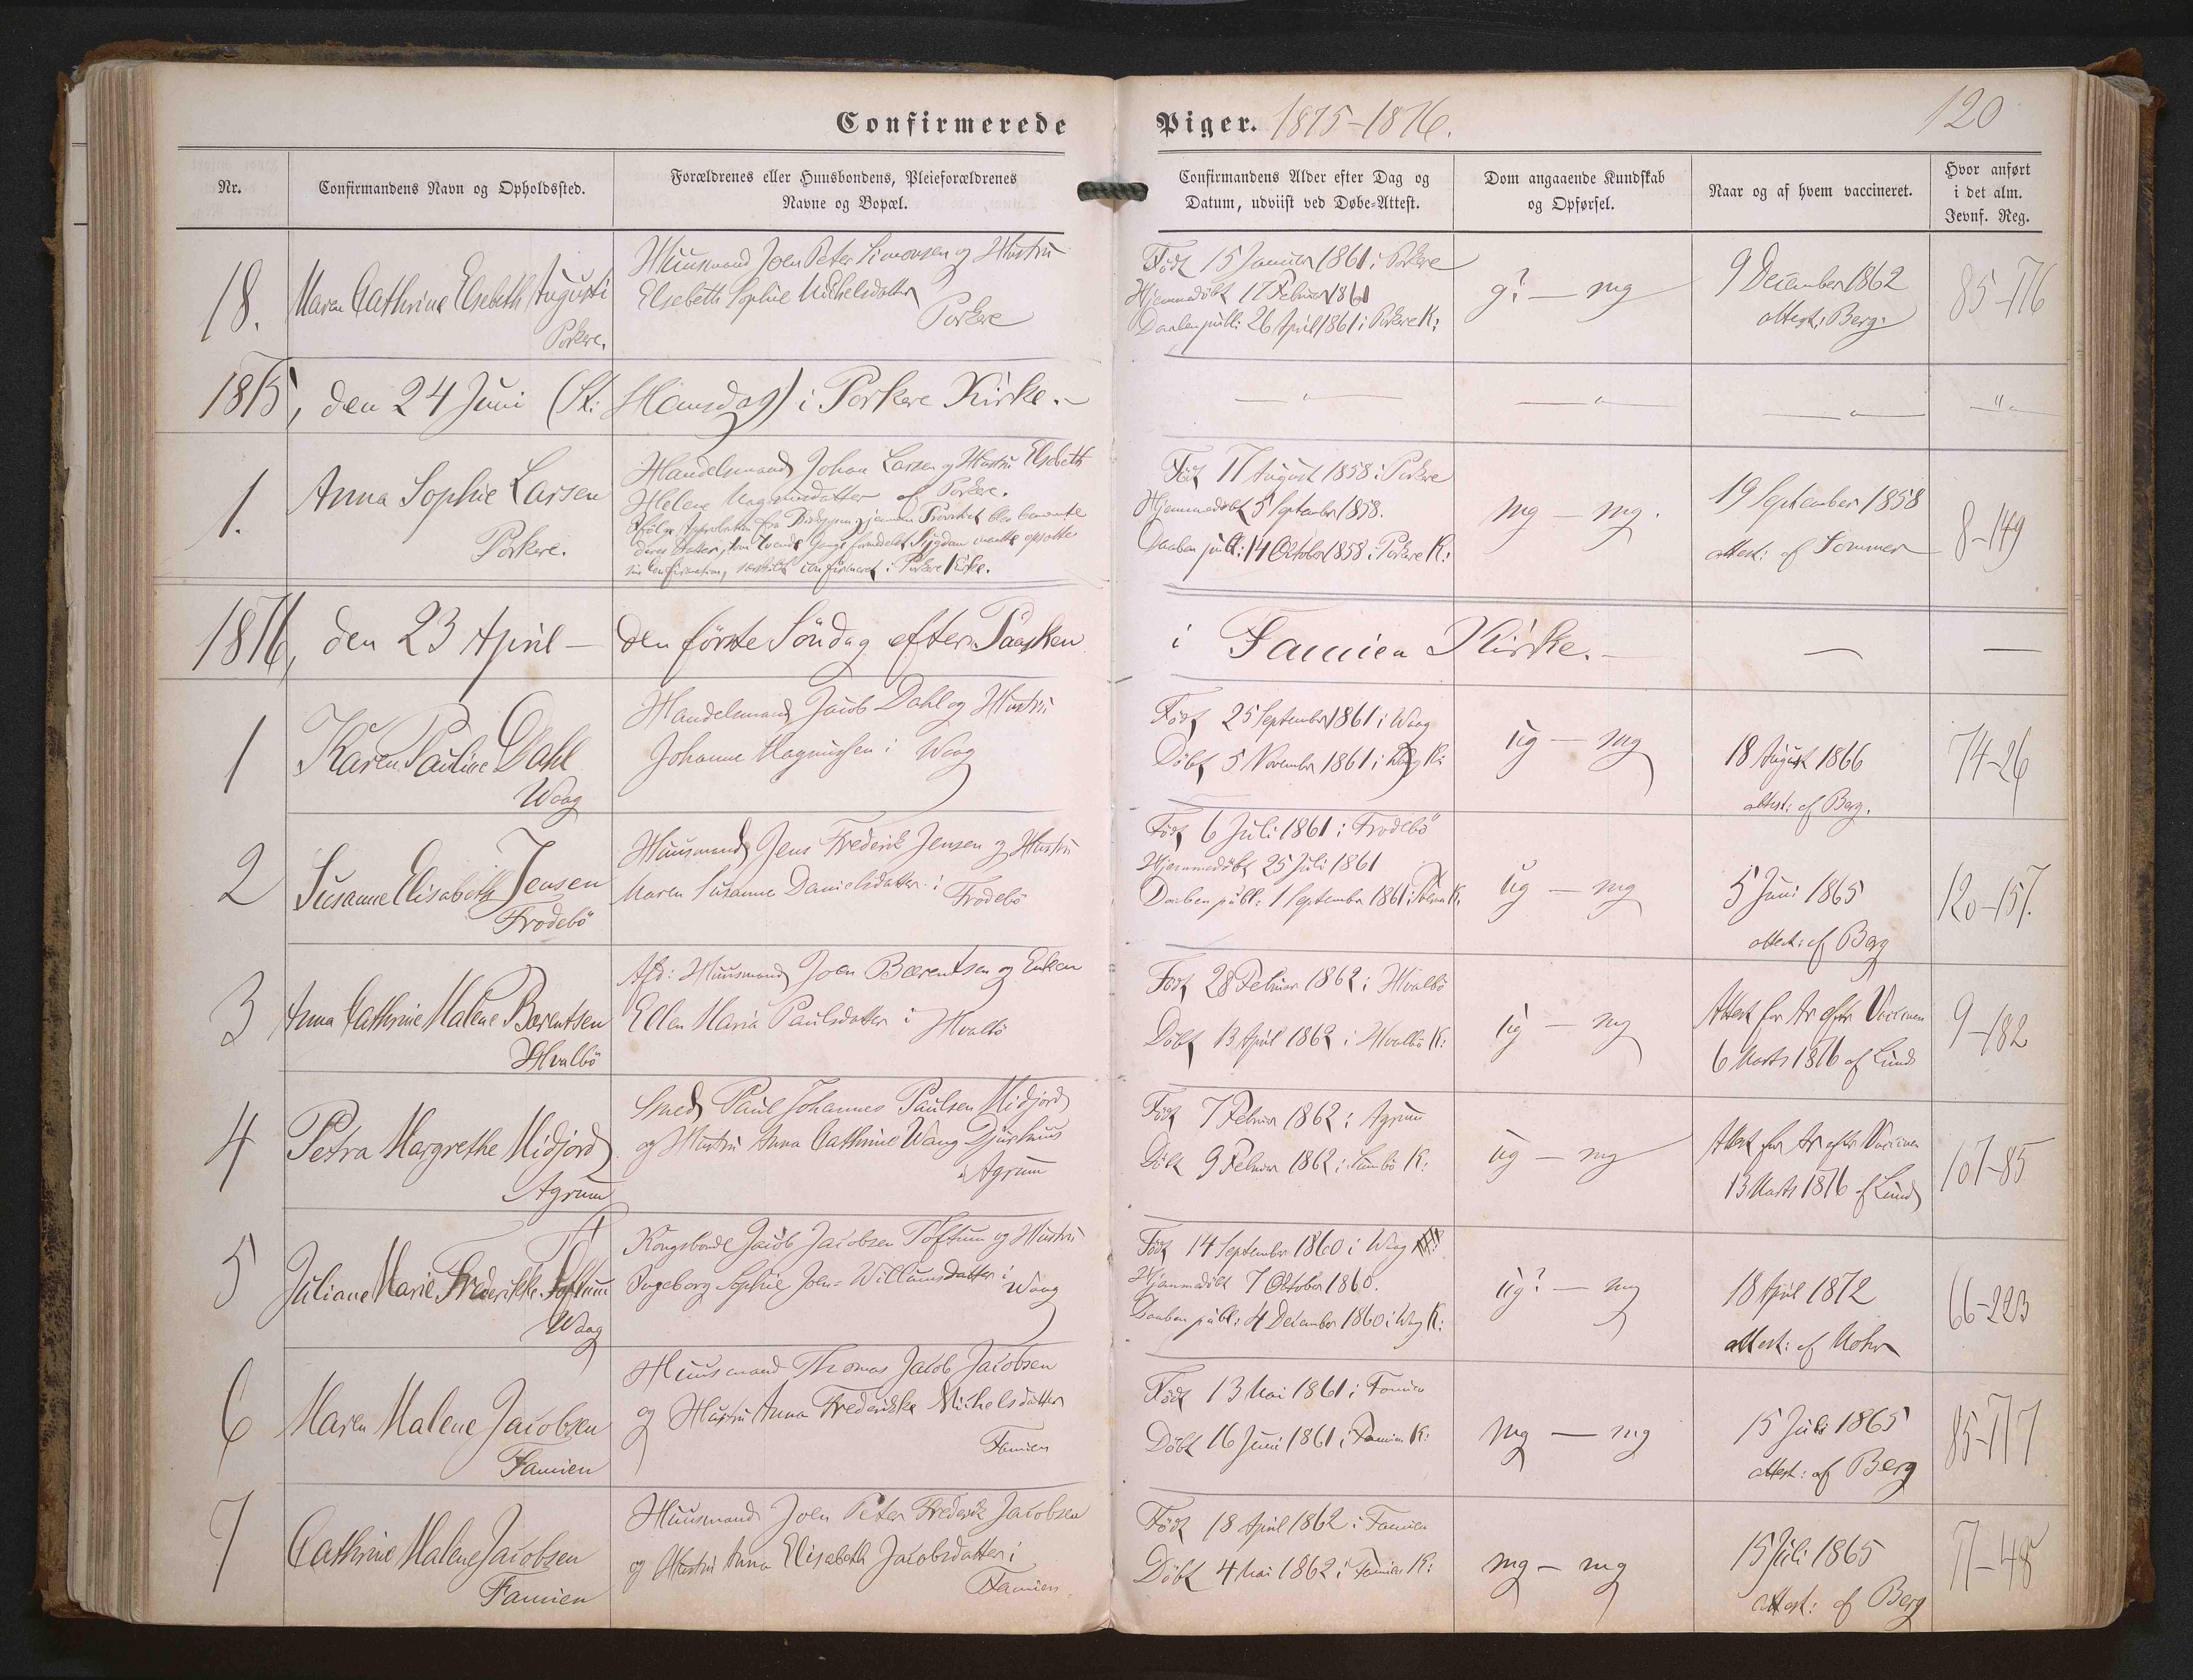 Confirmerede Piger. 1875-1876. 120
Nr.
Confirmandens Navn og Opholdssted.
Forældrenes eller Huusbondens, Pleieforældrenes
Navne og Bopæl.
Confirmandens Alder efter Dag og
Datum, udviist ved Døbe-Attest.
Dom angaaende Kundskab
og Opførsel.
Naar og af hvem vaccineret.
Hvor anført
i det alm.
Jevnf. Reg.
18.
Maren Cathrine Elsebeth Augusti
Porkere.
Huusmand Joen Peter Simonsen og Hustru
Elsebeth Sophie Michelsdatter
Porkere
Født 15 Januar 1861 i Porkere
Hjemmedøbt 17 Februar 1861
Daaben publ: 26 April 1861 i Porkere K:
g? — mg
9 December 1862
attest: Berg.
85-176
1875, den 24 Juni (St: Hansdag) i Porkere Kirke. —
1.
Anna Sophie Larsen
Porkere.
Handelsmand Johan Larsen og Hustru Elsebeth
Helene Magnusdatter af Porkere.
Ifølge Approbation fra Biskoppen gjennem Provstiet blev benævnte
deres Datter, som tvende Gange formedelst Sygdom maatte opsætte
sin Confirmation, særskilt confirmeret i Porkere Kirke.
Født 17 August 1858 i Porkere
Hjemmedøbt 5 September 1858.
Daaben publ: 14 October 1858 i Porkere K:
mg — mg.
19 September 1858
attest: af Sommer
8-149
1876, den 23 April — den første Søndag efter Paasken i Famien Kirke. —
1
Karen Pauline Dahl
Waag
Handelsmand Jacob Dahl og Hustru
Johanne Magnussen i Waag
Født 25 September 1861 i Waag
Døbt 5 November 1861 i Waag K:
ug — mg
18 August 1866
attest: af Berg.
74-26
2
Susanne Elisabeth Jensen
Frodebö
Huusmand Jens Frederik Jensen og Hustru
Maren Susanne Danielsdatter i
Frodebö
Født 6 Juli 1861 i Frodebö
Hjemmedøbt 25 Juli 1861
Daaben publ: 1 September 1861 i K.
ug — mg
5 Juni 1865
attest: af Berg
120-157.
3
Anna Cathrine Malene Barentsen
Hvalbö
Afd: Huusmand Joen Barentsen og Enken
Ellen Maria Paulsdatter i Hvalbö
Født 28 Februar 1862 i Hvalbö
Døbt 13 April 1862 i Hvalbö K:
ug — mg
Attest for Ar efter Vaccinen
6 Marts 1876 af Lund
9-182
4
Petra Margrethe Midjord
Agrum
Smed Paul Johannes Paulsen Midjord
og Hustru Anna Cathrine Wang Djurhuus
i Agrum
Født 7 Februar 1862 i Agrum
Døbt 9 Februar 1862 i Sumbö K:
ug — mg
Attest for Ar efter Vaccinen
13 Marts 1876 af Lund
107-85
5
Juliane Marie Frederikke Toftum
Waag
Kongsbonde Jacob Jacobsen Toftum og Hustru
Ingeborg Sophie Joen-Willumsdatter i
Waag
Født 14 September 1860 i Waag
Hjemmedøbt 7 Oktober 1860.
Daaben publ: 4 December 1860 i Waag K:
ug? — mg
18 April 1872
attest: af Mohr
66-223
6
Maren Malene Jacobsen
Famien
Huusmand Thomas Jacob Jacobsen
og Hustru Anna Frederikke Michelsdatter
Famien
Født 13 Mai 1861 i Famien
Døbt 16 Juni 1861 i Famien K:
mg — mg
15 Juli 1865
attest: af Berg
85-177
7
Cathrine Malene Jacobsen
Famien
Huusmand Joen Peter Frederik Jacobsen
og Hustru Anna Elisabeth Jacobsdatter i
Famien
Født 18 April 1862 i Famien
Døbt 4 Mai 1862 i Famien K:
mg — mg
15 Juli 1865
attest: af Berg
71-48